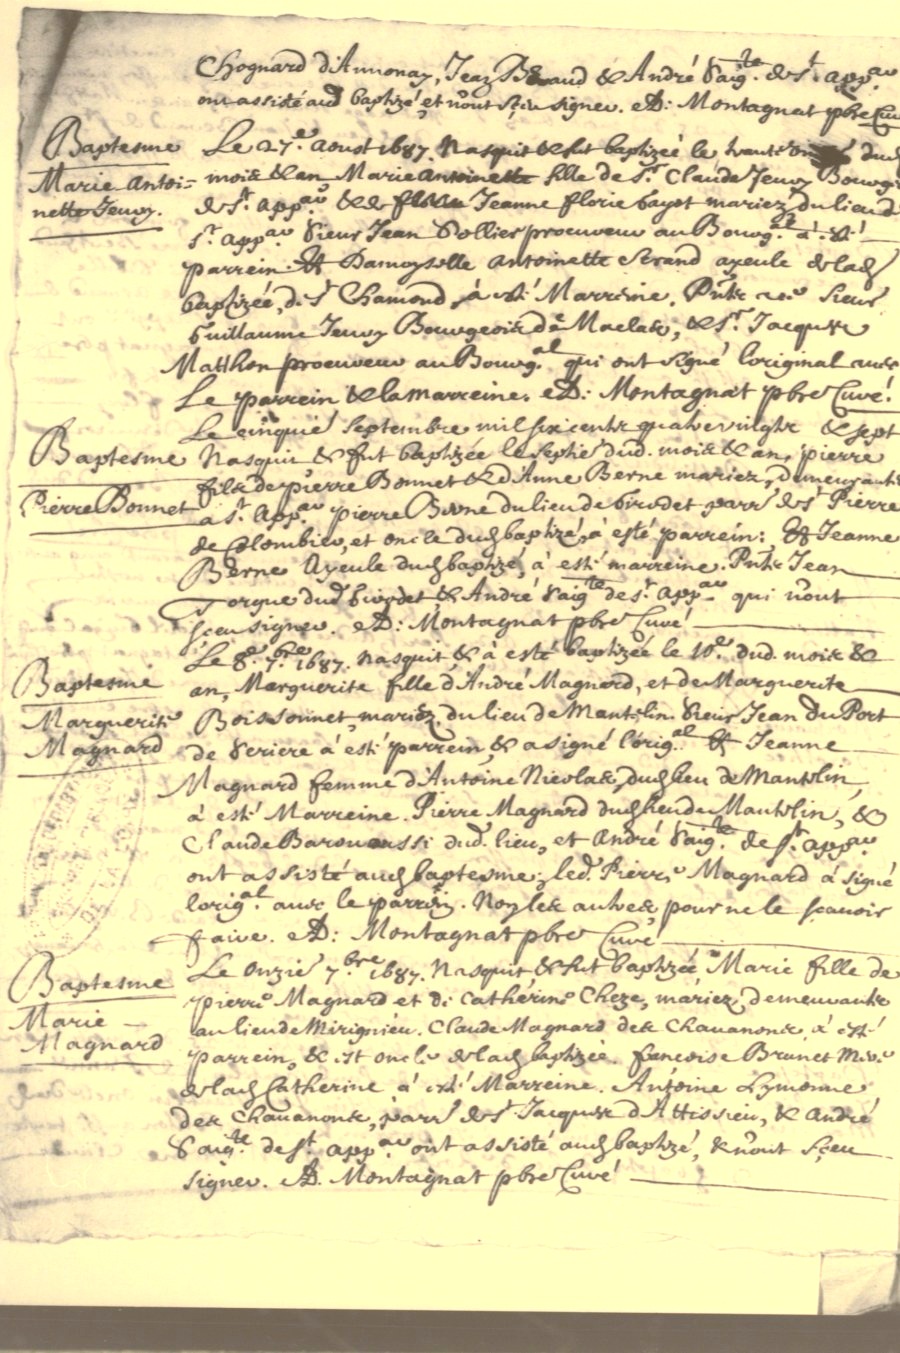 Chognard d'Annonay, Jean Beraud & André Vaig.te de St. app.au
ont assisté aud baptizé, et n'ont sçeu signer. AD: Montagnat pbre Curé
Baptesme
Marie Antoi=
nette Jeury.
Le 27.e aoust 1687. Nasquit & fut baptizeé le trante dud
mois & an Marie Antoinette fille de Sr. Claude Jeury Bourge
de St. app.au & de Jeanne florie gayot mariez, du lieu de
St. app.au Sieur Jean Sollier procureur au Bourg.al à été
parrein & Damoyselle Antoinette Serand ayeule de lad
baptizée, de St Chamond, à esté Marreine. Pnts Sieur
Guillaume Jeury Bourgeois de Maclas, & Sr. Jacques
Matthon procureur au Bourg.al qui ont signé l'original avec
Le parrein & la marreine. AD: Montagnat pbre Curé.
Baptesme
Pierre Bonnet
Le cinquié septembre mil six cents quatre vingts & sept
Nasquit & fut baptizée le septié dud. mois & an, pierre
fils de pierre Bonnet & d'Anne Berne mariez, demeurants
à St. App.au pierre Berne du lieu de Girodet parr. de St Pierre
de Colombier, et oncle dud baptizé, à esté parrein; & Jeanne
Berne Ayeule dud baptizé, à esté marreine. Pnts Jean
Forque dud Girodet, & André Vaig.te de St. App.au qui n'ont
sçeu signer. AD: Montagnat pbre Curé
Baptesme
Marguerite
Magnard
Le 8.e 7.bre 1687. nasquit & à esté baptizée le 10.e dud. mois &
an, Marguerite fille d'André Magnard, et de Marguerite
Boissonnet, mariez, du lieu de Mantelin Sieur Jean Du Port
de Seriere à esté parrein, & a signé l'orig.al & Jeanne
Magnard femme d'Antoine Nicolas, dud lieu de Mantelin,
à esté Marreine. Pierre Magnard dud lieu de Mantelin, &
Claude Baron aussi dud. lieu, et André Vaig.te de St. app.au
ont assisté aud baptesme; led. Pierre Magnard à signé
l'orig.al avec le parrein. Non les autres, pour ne le sçavoir
faire. AD: Montagnat pbre Curé
Baptesme
Marie
Magnard
Le Onzié 7.bre 1687. Nasquit & fut baptizée Marie fille de
pierre Magnard et de Catherine Cheze, mariez, demeurants
au lieu de Mirignieu. Claude Magnard des Chavanons à esté
parrein, & est oncle de lad baptizée. francoise Brunet
de lad Catherine à esté Marreine. Antoine Lymonne
des Chavanons, parr. de St Jacques d'Attissieu, & André
Vaig.te de St. app.au ont assisté aud baptizé, & n'ont sçeu
signer. AD. Montagnat pbre Curé